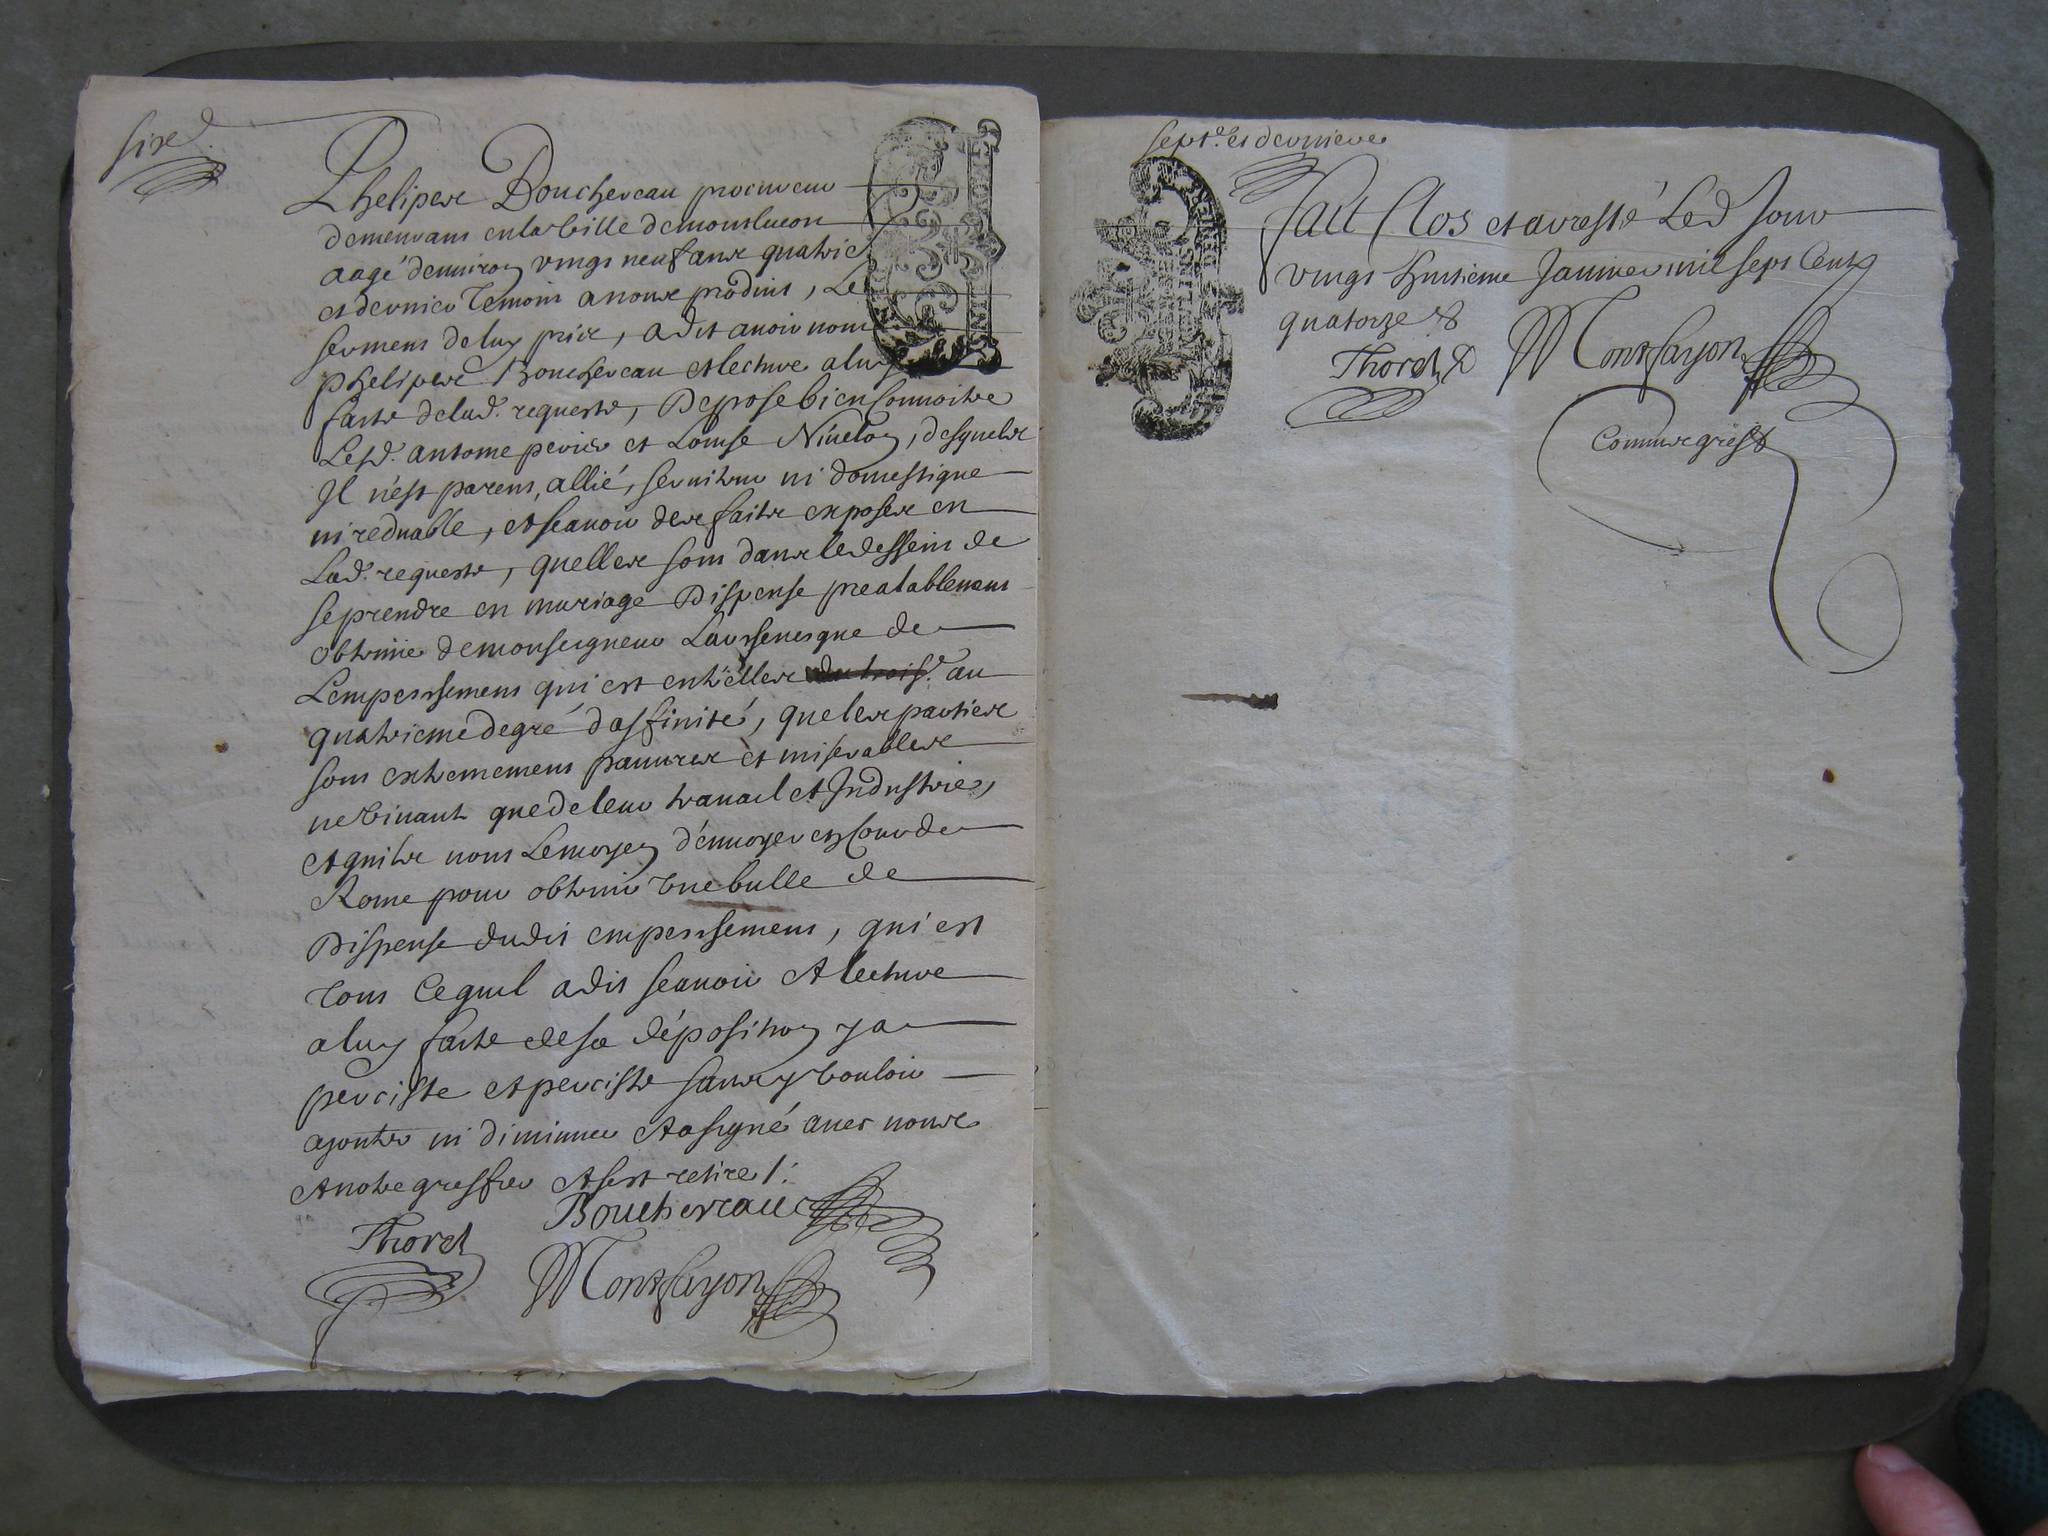 sixe
Phelipes Bouchereau procureur
demeurant en la ville de monlucon
aagé denuiron vingt neuf ans quatrie
et dernier temoin a nous produit, le
serment de luy pris, a dit auoir nom
phelipes Bouchereau et lecture a luy
faite de lad. requeste, Depose bien connoitre
Lesd. antoine perier et Louise Niuelon, desquels
Il n'est parent, allié, seruiteur ni domestique
ni reduable, et scauoir des faits exposes en
Lad. requeste, quelles sont dans le dessein de
se prendre en mariage Dispense prealablement
obtenüe de monseigneur Larsseuesque de
L'empessement qui est entr'elles du trois.e au
quatrieme degré d'affinité, que les parties
sont extrememens pauures et miserables
ne viuant que de leur trauail et Industrie,
et quils nont Le moyen d'enuoyer en Cour de
Rome pour obtenir vne bulle de
Dispense dudit empessement, qui est
tout Ce quil a dit scauoir et lecture
a luy faite de sa déposition y a
perciste et perciste sans y vouloir
ajouter ni diminuer et a signé auec nous
et notre greffier et s'est retire /.
Bouchereau
Thoret
Montsayon
sept.e et derniere
fait Clos et arresté Led Jour
vingt huitieme Januier mil sept Cent
quatorze &
Thoret Montsayon
Comm.re greff